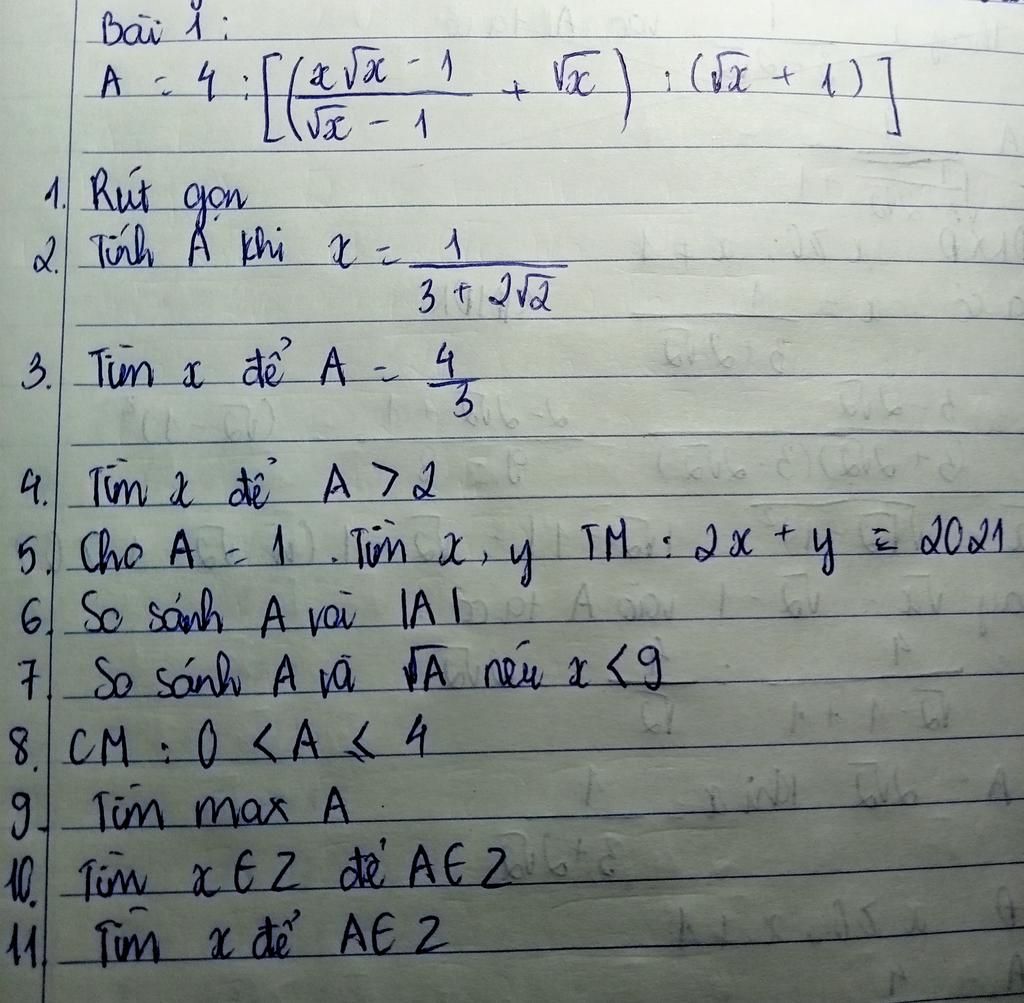 Bài 1:
A = 4 : [((x√x - 1)/(√x - 1) + √x) : (√x + 1)]
1. Rút gọn
2. Tính A khi x = 1/(3 + 2√2)
3. Tìm x để A = 4/3
4. Tìm x để A > 2
5. Cho A = 1. Tìm x, y TM : 2x + y = 2021
6. So sánh A với |A|
7. So sánh A và √A nếu x < 9
8. CM : 0 < A ≤ 4
9. Tìm max A
10. Tìm x ∈ Z để A ∈ Z
11. Tìm x để A ∈ Z